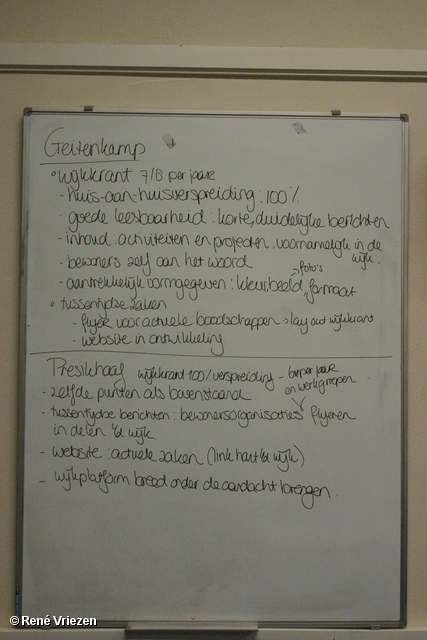 Geitenkamp
◦ wijkkrant 7/8 per jaar
- huis-aan-huisverspreiding : 100%
- goede leesbaarheid : korte, duidelijke berichten
- inhoud : activiteiten en projecten . voornamelijk in de wijk.
- bewoners zelf aan het woord
→ foto's
- aantrekkelijk vormgegeven : kleur, beeld, formaat
◦ tussentijdse zaken
- flyer voor actuele boodschappen → lay out wijkkrant
- website in ontwikkeling
Presikhaaf wijkkrant 100% verspreiding - per jaar
en werkgroepen
- zelfde punten als bovenstaand
- tussentijdse berichten : bewonersorganisaties flyeren
in delen vd wijk.
- website : actuele zaken (link hart vd wijk)
- wijkplatform breed onder de aandacht brengen.
© René Vriezen